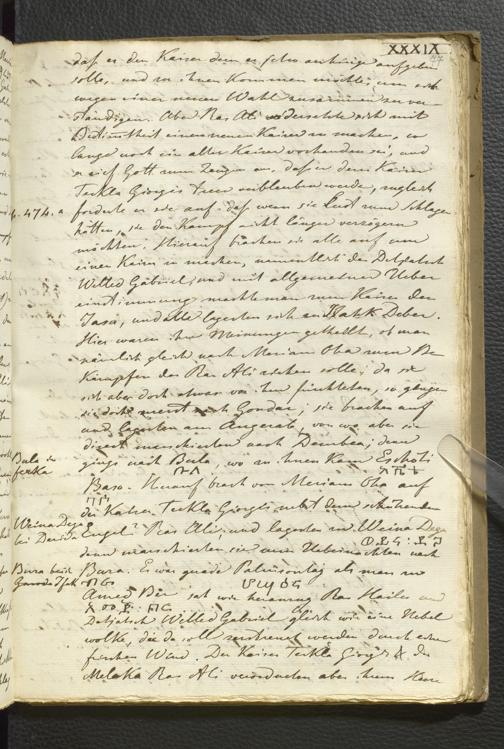 XXXIX
daß er den Kaiser dem er schon anhänge aufgeben
solle, und zu ihnen kommen möchte, um sich
wegen einer neuen Wahl zusammen zu ver-
ständigen. Aber Ras Ali widersetzte sich mit
Bestimmtheit einen neuen Kaiser zu machen, so
lange noch ein alter Kaiser vorhanden sei, und
rief Gott zum Zeugen an, daß er dem Kaiser
Tekla Giorgis treu verbleiben werde, zugleich
p. 474. a forderte er sie auf, daß wenn sie Lust zum Schlagen
hätten, sie den Kampf nicht länger verzögern
möchten. Hierauf brachen sie alle auf um
einen Kaiser zu machen, der Detjatsch
Willed Gabriel, und mit allgemeiner Ueber
einstimmung machte man zum Kaiser den
Jasu, und alle lagerten sich an Zahk Deber.
Hier waren ihre Meinungen getheilt, ob man
nämlich gleich nach Meriam Oha zum Be
kämpfen des Ras Ali ziehen solle; da sie
sich aber doch etwas vor ihm fürchteten, so gingen
sie erst nach Gondar; sie brachen auf
und lagerten am Angerab, von wo aber sie
direct marschierten nach Dembea; dann
Bula in
ferka
gings nach Bula, wo zu ihnen kam
ቡላ
Baso. Hierauf brach von Meriam Oha auf
der Kaiser Tekla Giorgis nebst dem schützenden
Weina Dega
bei Derida
Engel Ras Ali, und lagerten in Weina Dega
ወይና : ደጋ
dann marschierten sie zum Uebernachten nach
Bura beim
Bura. Es war grade Palmsonntag als man in
ቡራ
Amed Ber sah wie heranzog Ras Hailo und
አመድ : በር
Detjatsch Willed Gabriel gleich wie eine Nebel
wolke, die da soll zerstreut werden durch einen
Wind. Der Kaiser Tekla Giorgis & der
Melaka Ras Ali aber ihren Heere